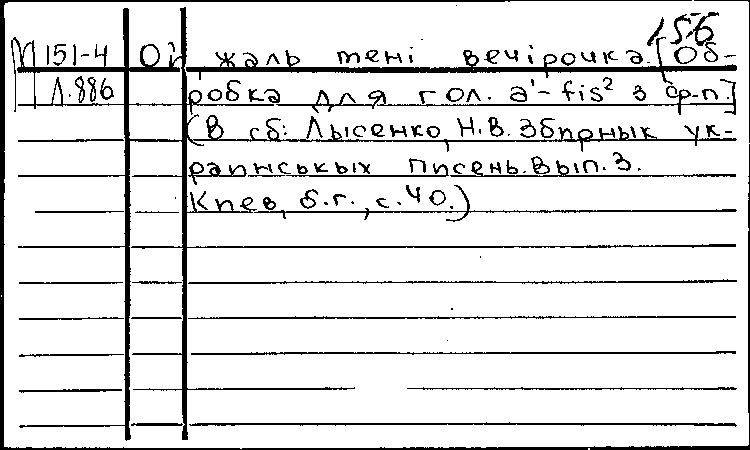 156
М 151-4 Ой жаль мені вечірочка. [Об-
Л.886 робка для гол. a¹-fis² з ф-п.]
(В сб: Лысенко, Н.В. Збирнык ук-
раинськых писень. Вып. 3.
Киев, б.г., с. 40.)